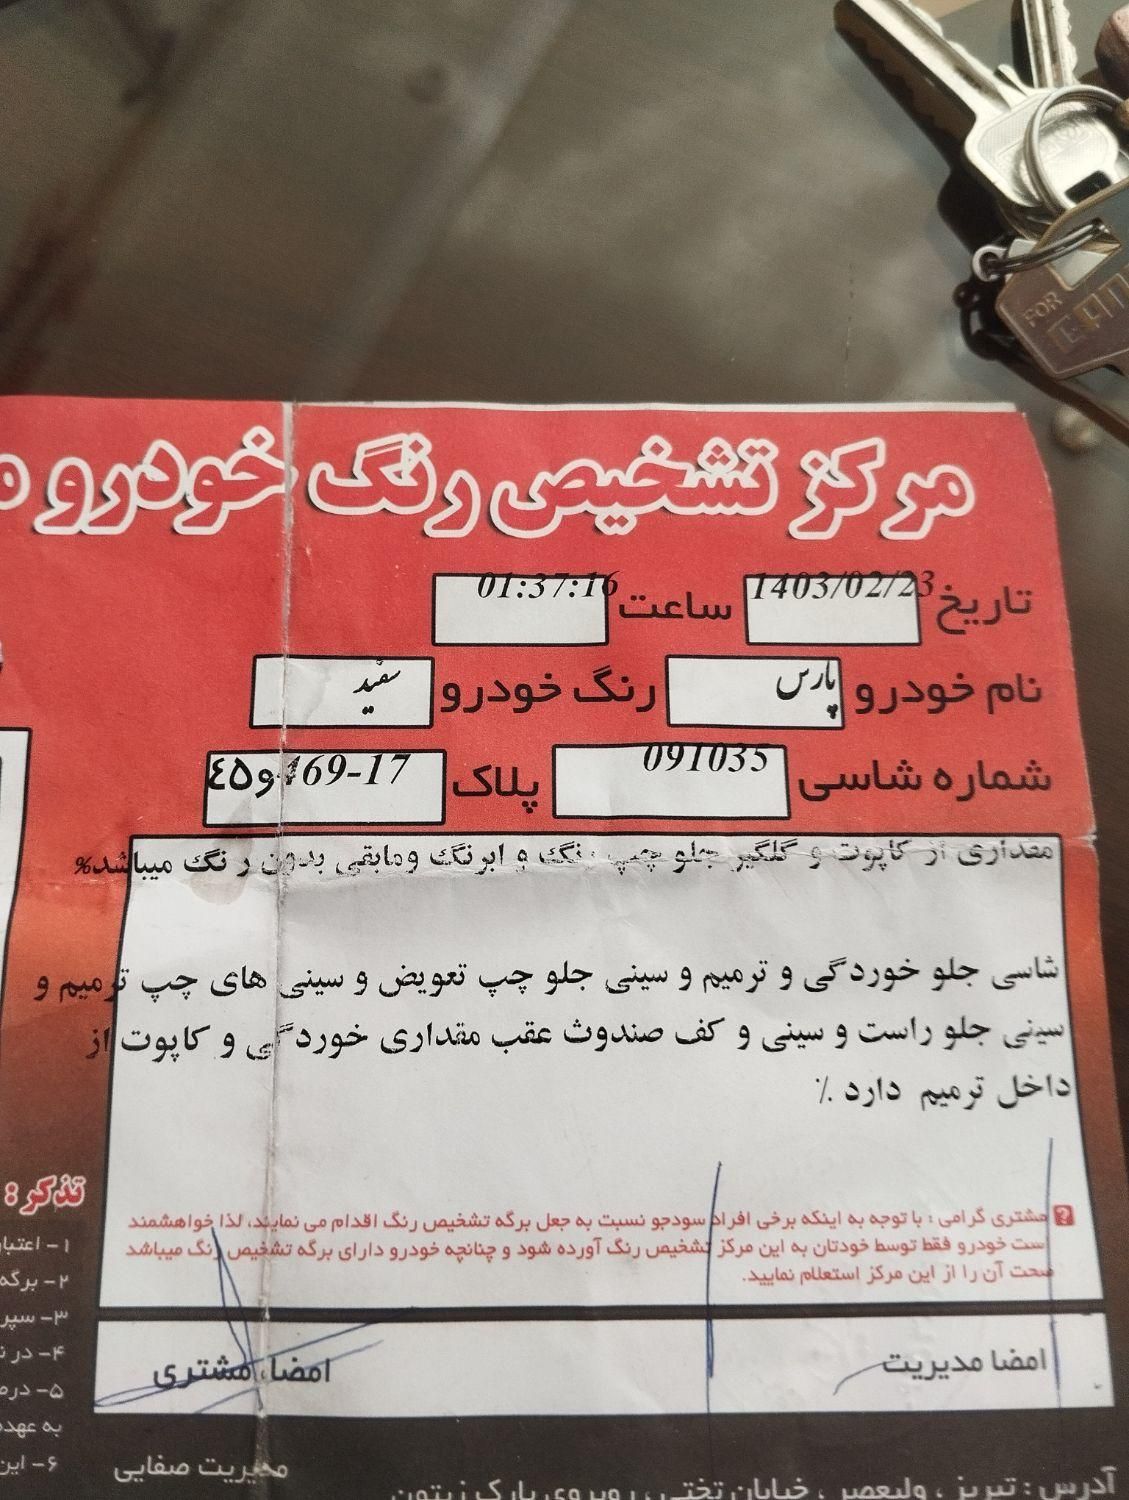 مرکز تشخیص رنگ خودرو
تاریخ 1403/02/23 ساعت 01:37:16
نام خودرو پارس رنگ خودرو سفید
شماره شاسی 091035 پلاک 469-17و45
مقداری از کاپوت و گلگیر جلو چپ رنگ و ابرنگ ومابقی بدون رنگ میباشد%
شاسی جلو خوردگی و ترمیم و سینی جلو چپ تعویض و سینی های چپ ترمیم و
سینی جلو راست و سینی و کف صندوث عقب مقداری خوردگی و کاپوت از
داخل ترمیم دارد ٪
مشتری گرامی : با توجه به اینکه برخی افراد سودجو نسبت به جعل برگه تشخیص رنگ اقدام می نمایند، لذا خواهشمند
است خودرو فقط توسط خودتان به این مرکز تشخیص رنگ آورده شود و چنانچه خودرو دارای برگه تشخیص رنگ میباشد
صحت آن را از این مرکز استعلام نمایید.
امضا مدیریت امضاء مشتری
تذکر :
۱- اعتبار
۲- برگه
۳- سپر
۴- در
۵-
به عهده
۶- این
مدیریت صفایی
آدرس : تبریز ، ولیعصر ، خیابان تختی ، روبروی پارک زیتون
FOR